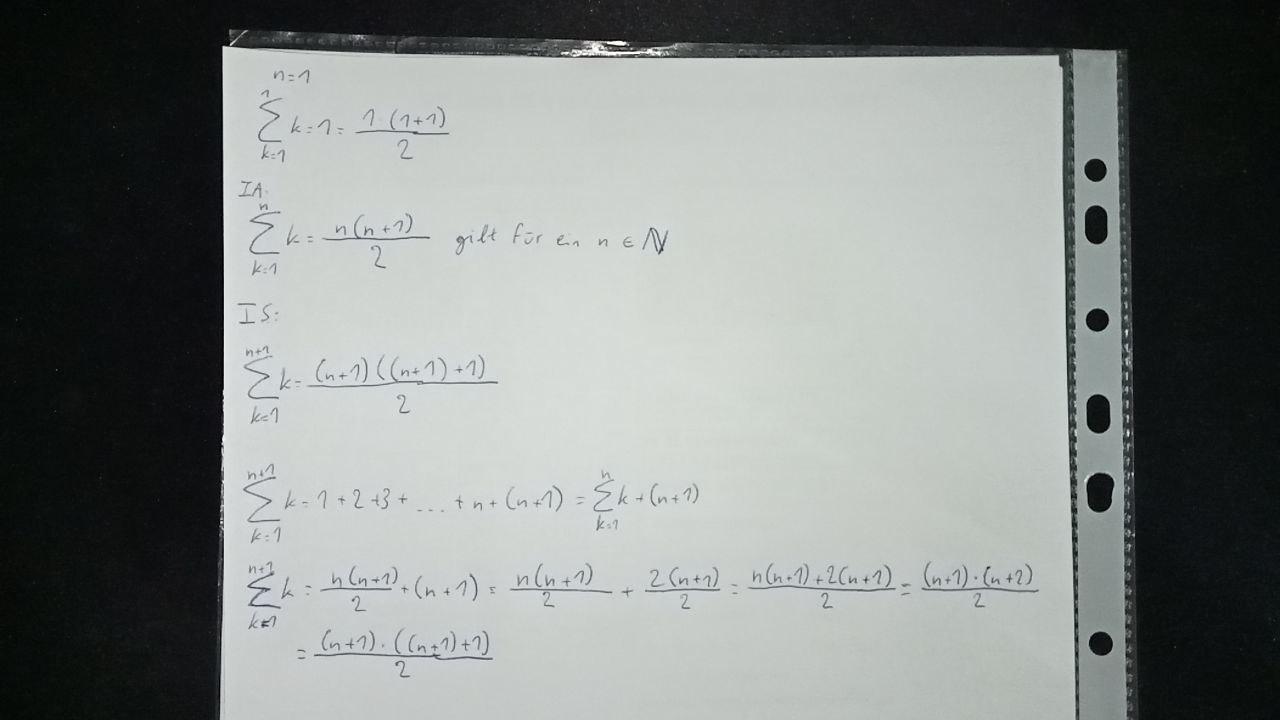 n=1
\sum_{k=1}^{1} k = 1 = \frac{1 \cdot (1+1)}{2}
IA:
\sum_{k=1}^{n} k = \frac{n(n+1)}{2} gilt für ein n ∈ ℕ
IS:
\sum_{k=1}^{n+1} k = \frac{(n+1)((n+1)+1)}{2}
\sum_{k=1}^{n+1} k = 1+2+3+ ... +n+(n+1) = \sum_{k=1}^{n} k+(n+1)
\sum_{k=1}^{n+1} k = \frac{n(n+1)}{2} + (n+1) = \frac{n(n+1)}{2} + \frac{2(n+1)}{2} = \frac{n(n+1)+2(n+1)}{2} = \frac{(n+1) \cdot (n+2)}{2}
= \frac{(n+1) \cdot ((n+1)+1)}{2}